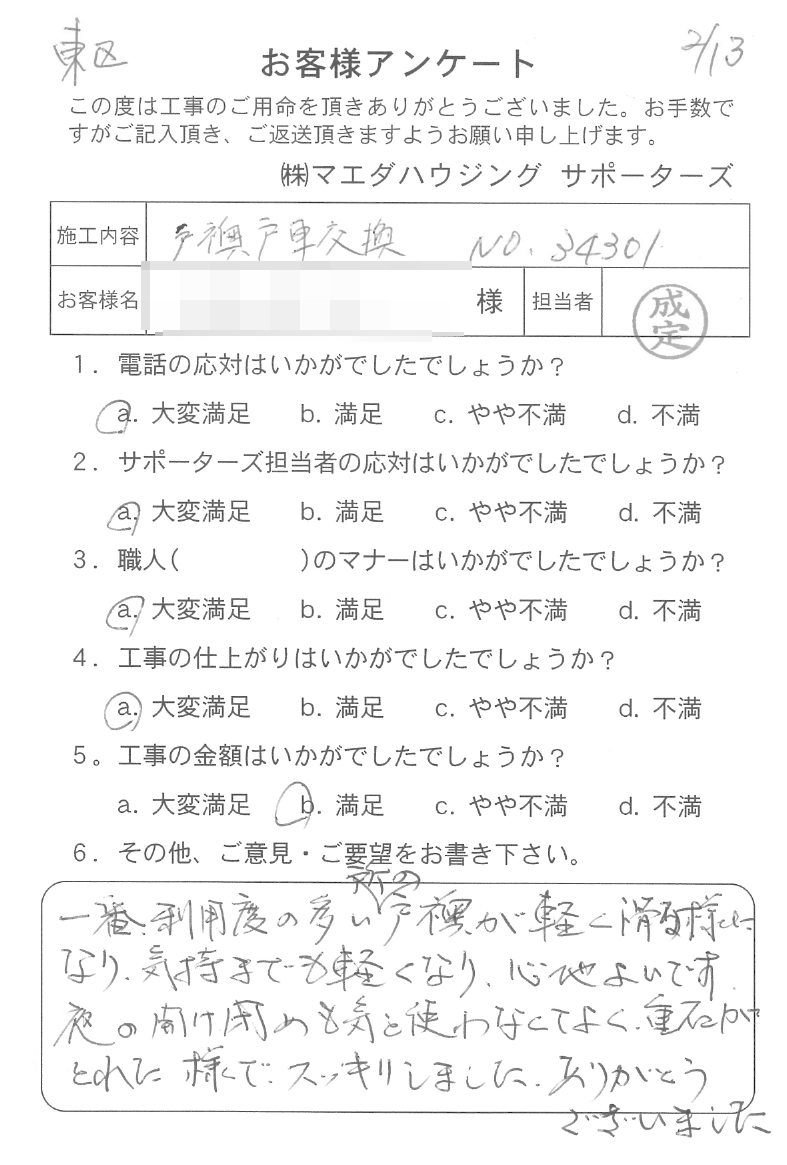 東区
2/13
お客様アンケート
この度は工事のご用命を頂きありがとうございました。お手数で
すがご記入頂き、ご返送頂きますようお願い申し上げます。
㈱マエダハウジング サポーターズ
施工内容 戸襖戸車交換 NO. 34301
お客様名 様 担当者 成定
1. 電話の応対はいかがでしたでしょうか?
a. 大変満足 b. 満足 c. やや不満 d. 不満
2. サポーターズ担当者の応対はいかがでしたでしょうか?
a. 大変満足 b. 満足 c. やや不満 d. 不満
3. 職人( )のマナーはいかがでしたでしょうか?
a. 大変満足 b. 満足 c. やや不満 d. 不満
4. 工事の仕上がりはいかがでしたでしょうか?
a. 大変満足 b. 満足 c. やや不満 d. 不満
5。工事の金額はいかがでしたでしょうか?
a. 大変満足 b. 満足 c. やや不満 d. 不満
6. その他、ご意見・ご要望をお書き下さい。
一番、利用度の多い所の戸襖が軽く滑る様に
なり、気持までも軽くなり、心地よいです。
夜の開け閉めも気を使わなくてよく、重石が
とれた様で、スッキリしました。ありがとう
ございました